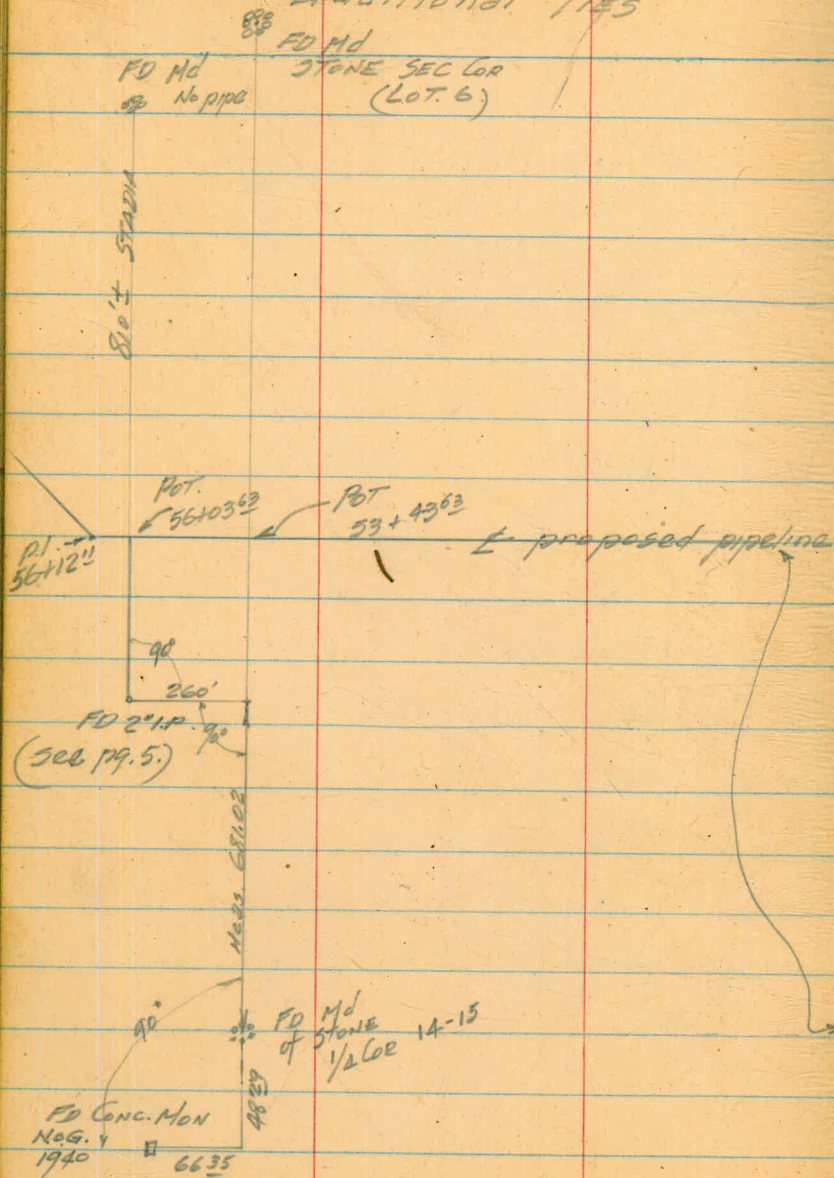 Additional Ties
FD Md
STONE SEC COR
(LOT. 6)
FD Md
No pipe
810'± STADIA
POT.
56+03 63
POT
53+43 63
P.I.
56+12 11
℄ proposed pipeline
90°
260'
FD 2" I.P.
90°
(see pg. 5.)
Meas 681.02
90°
FD Md
of STONE
1/4 COR 14-15
48 29
FD CONC. MON
No G. 4
1940
66 35